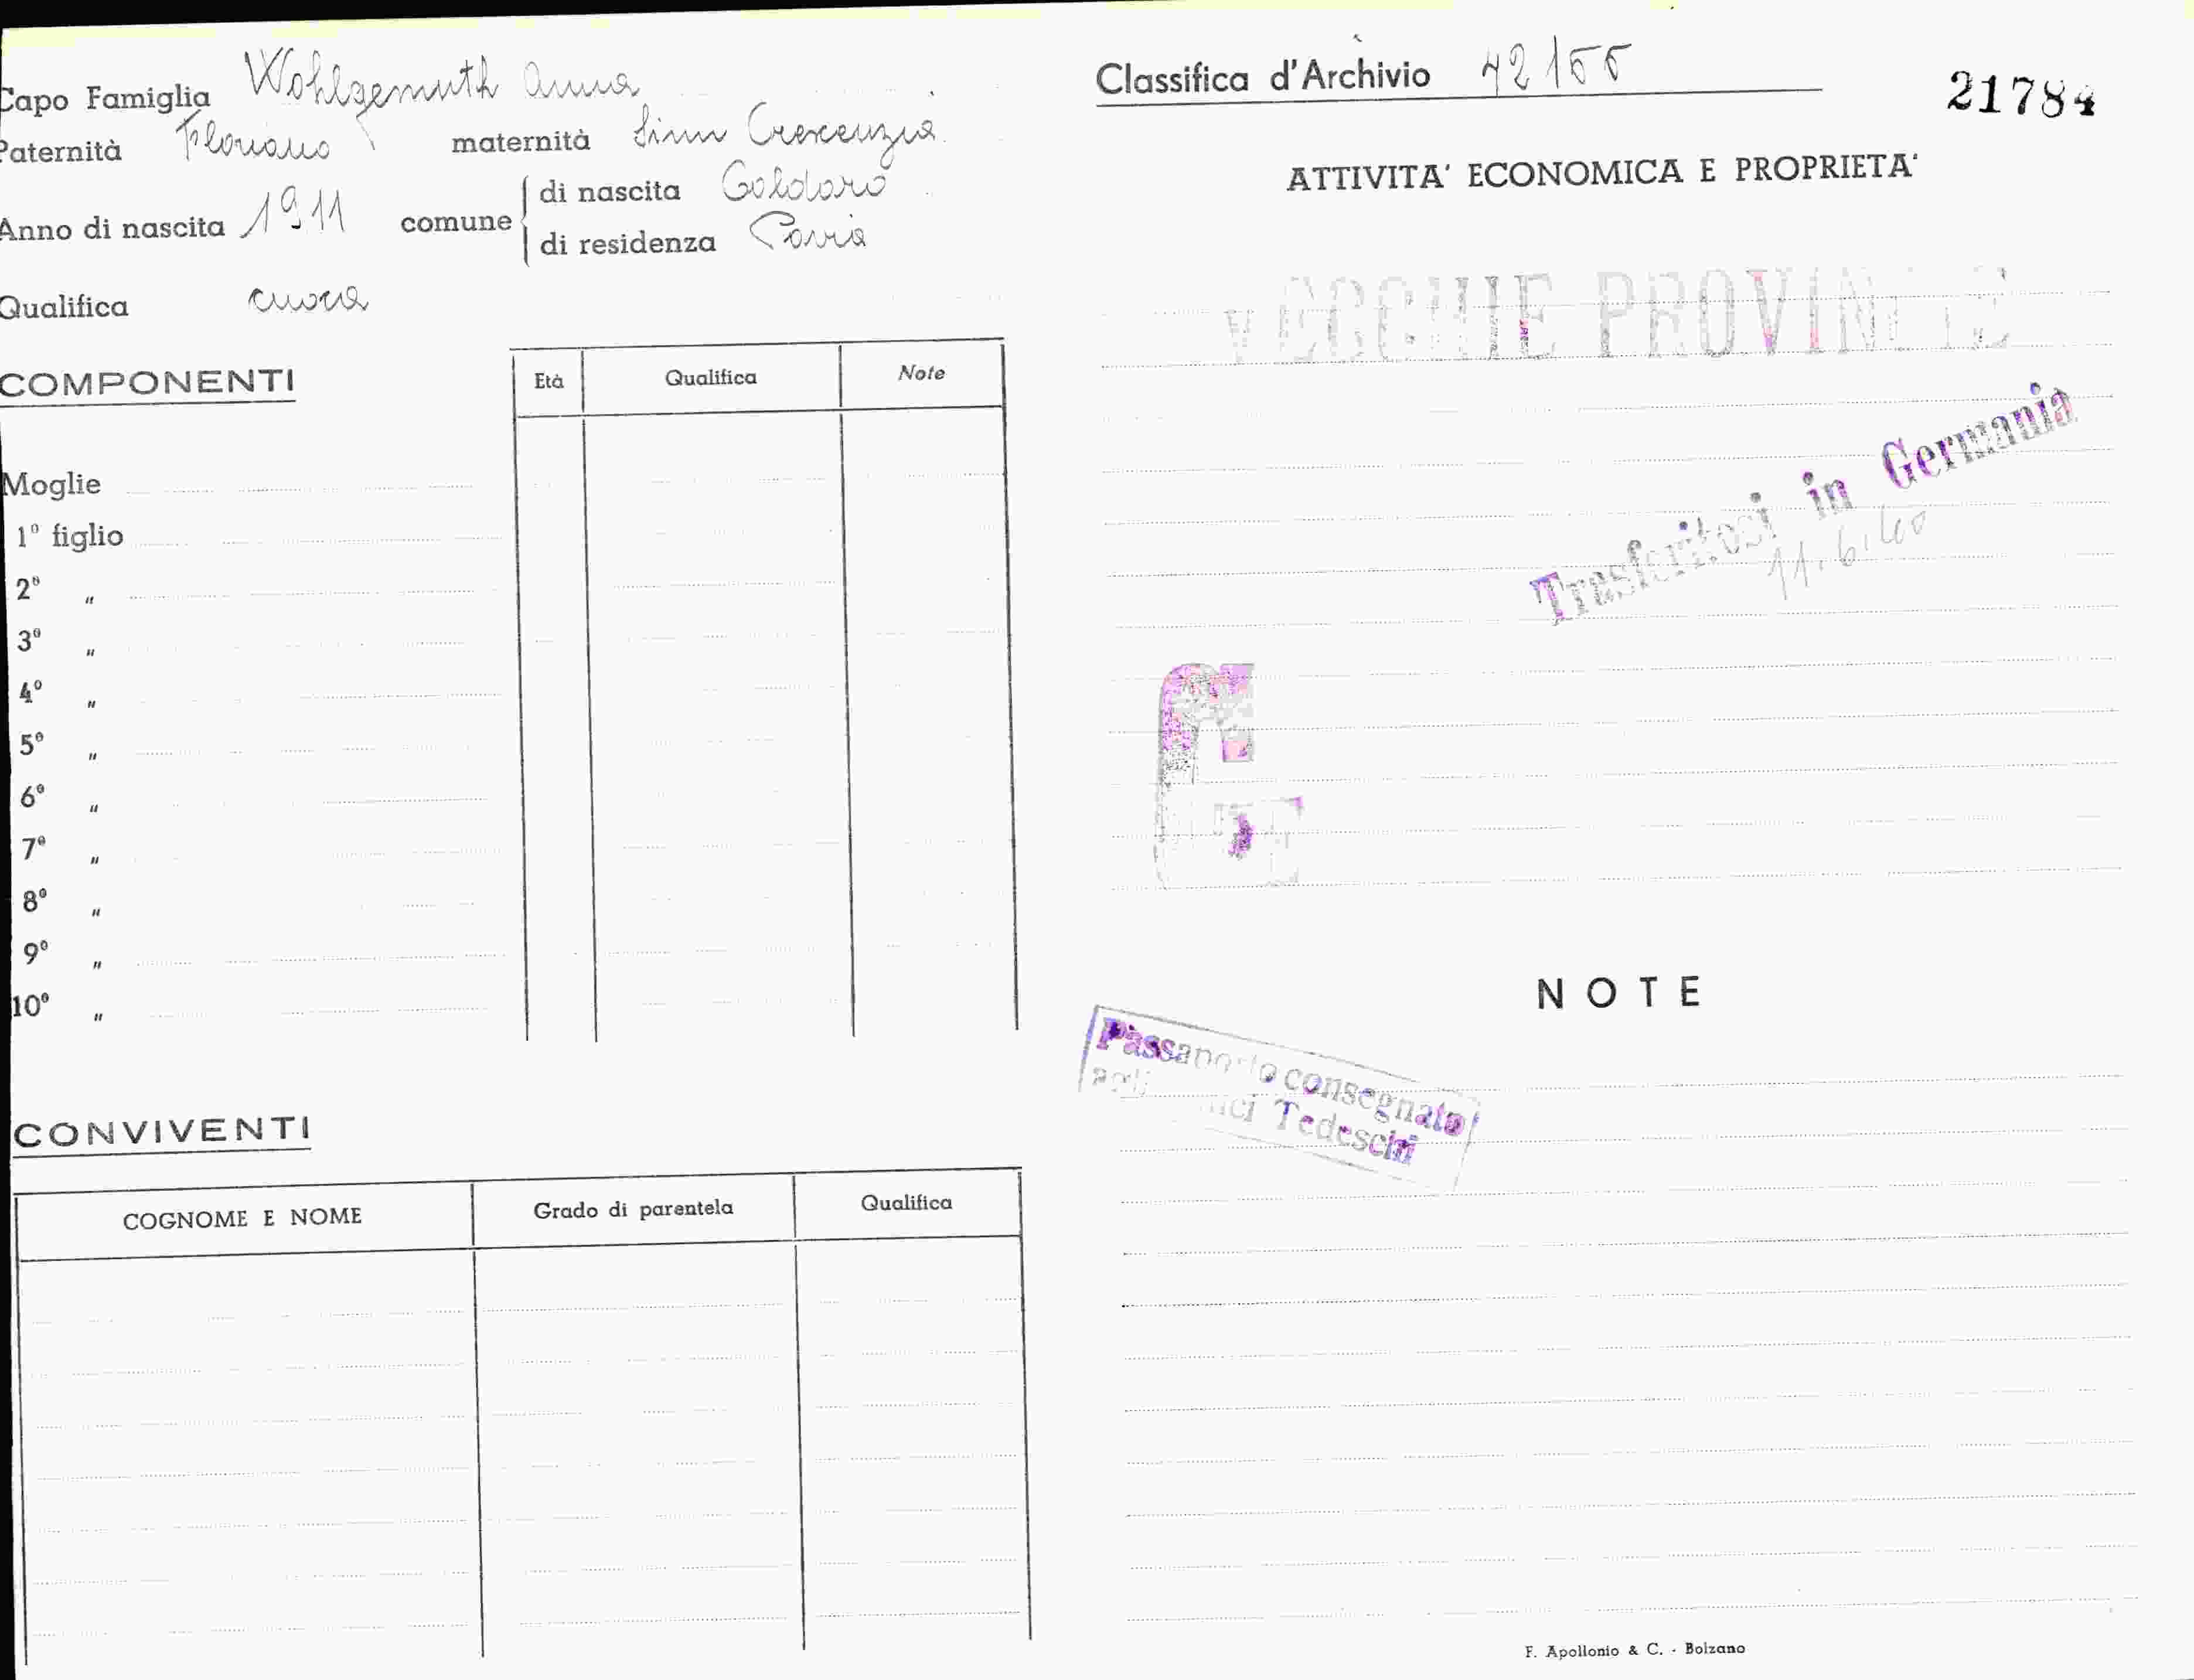 Capo Famiglia Wohlgemuth Anna
Paternità Floriano maternità Sinn Crescenzia
Anno di nascita 1911 comune
di nascita Caldaro
di residenza Pavia
Qualifica cuoca
COMPONENTI
Età Qualifica Note
Moglie
1º figlio
2º "
3º "
4º "
5º "
6º "
7º "
8º "
9º "
10º "
CONVIVENTI
COGNOME E NOME Grado di parentela Qualifica
Classifica d'Archivio 42155
21784
ATTIVITA' ECONOMICA E PROPRIETA'
VECCHIE PROVINCIE
Trasferitosi in Germania
11.6.40
NOTE
Passaporto consegnato
Tedeschi
F. Apollonio & C. - Bolzano